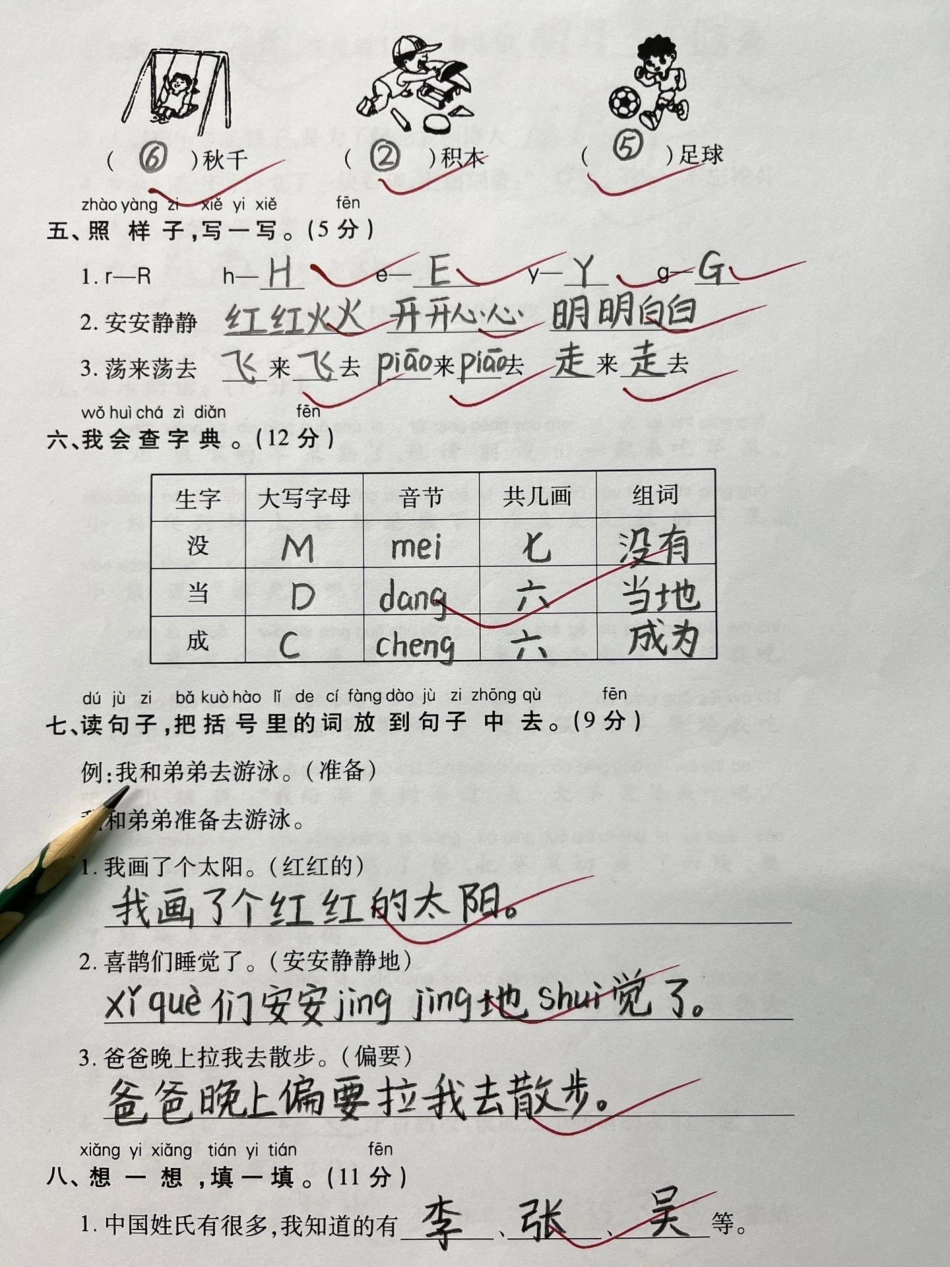 ( ⑥ )秋千 ( ② )积木 ( ⑤ )足球
zhào yàng zi xiě yi xiě fēn
五、照样子,写一写。(5分)
1. r—R h—H e—E y—Y g—G
2. 安安静静 红红火火 开开心心 明明白白
3. 荡来荡去 飞来飞去 piāo来piāo去 走来走去
wǒ huì chá zì diǎn fēn
六、我会查字典。(12分)
生字 大写字母 音节 共几画 组词
没 M mei 七 没有
当 D dang 六 当地
成 C cheng 六 成为
dú jù zi bǎ kuò hào lǐ de cí fàng dào jù zi zhōng qù fēn
七、读句子,把括号里的词放到句子中去。(9分)
例:我和弟弟去游泳。(准备)
我和弟弟准备去游泳。
1. 我画了个太阳。(红红的)
我画了个红红的太阳。
2. 喜鹊们睡觉了。(安安静静地)
xǐ què们安安jing jing地shui觉了。
3. 爸爸晚上拉我去散步。(偏要)
爸爸晚上偏要拉我去散步。
xiǎng yi xiǎng tián yi tián fēn
八、想一想,填一填。(11分)
1. 中国姓氏有很多,我知道的有李、张、吴等。